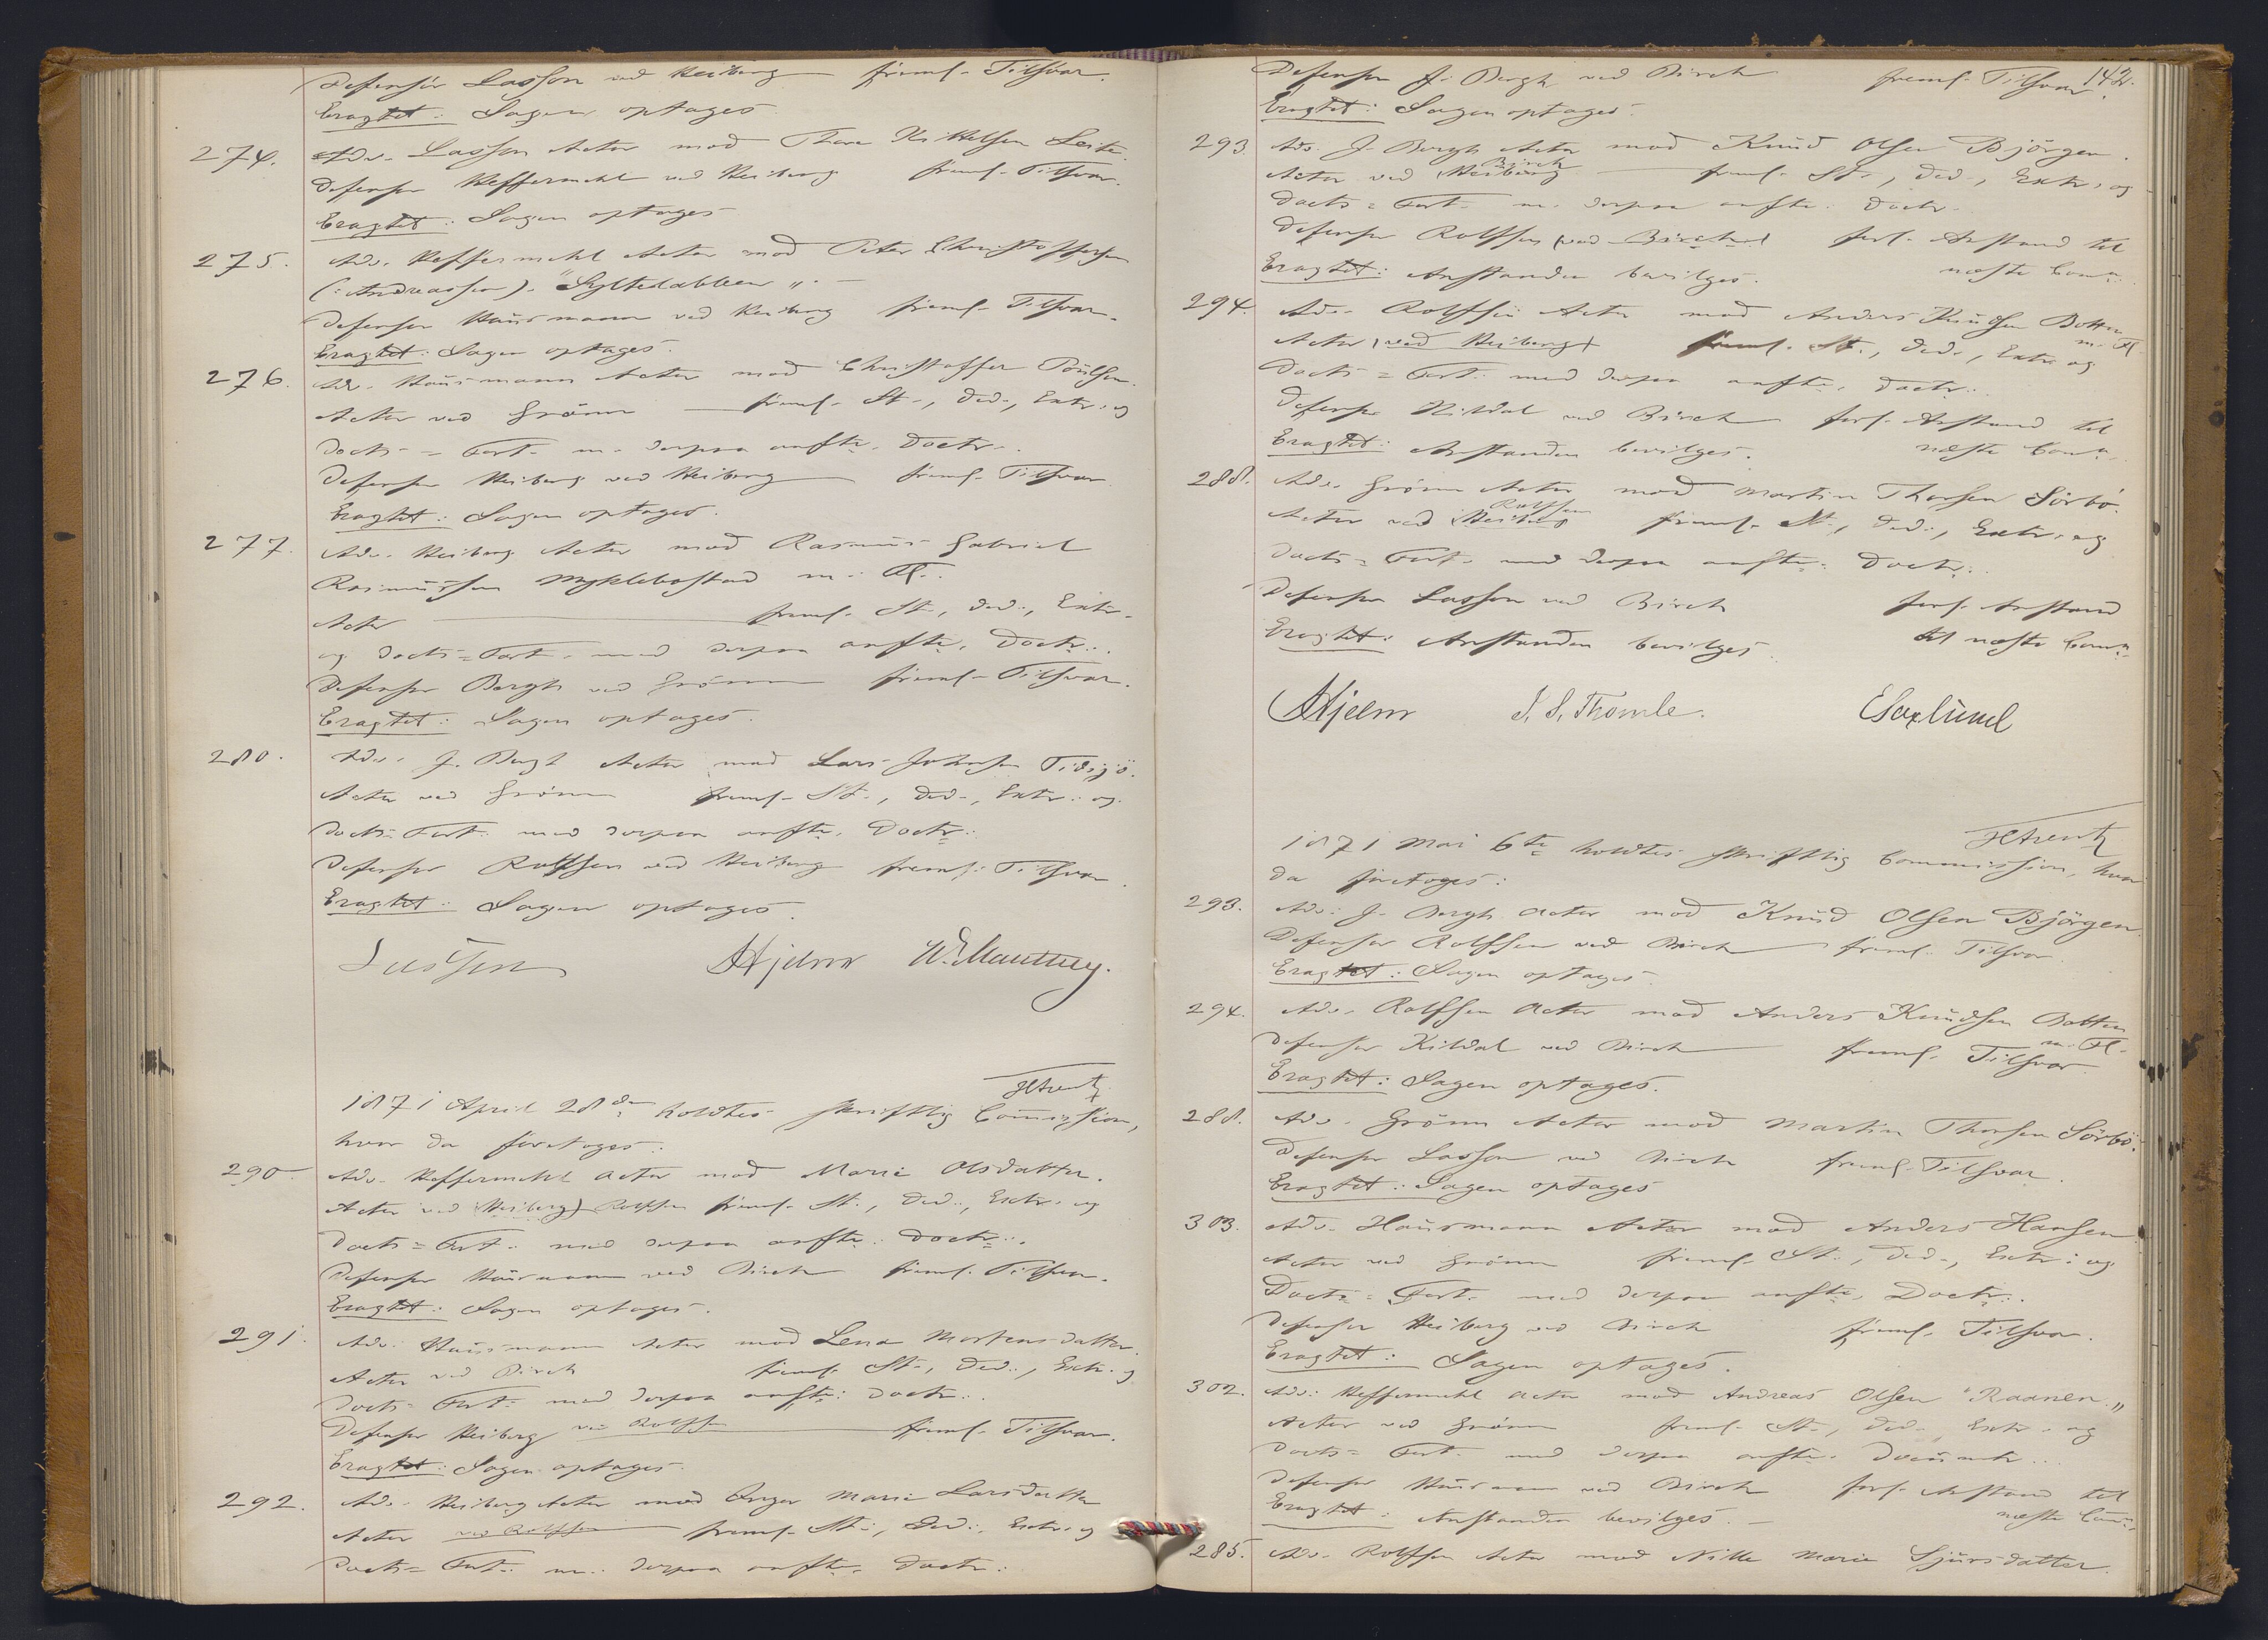 Defensor Lasson ved Heiberg freml. Tilsvar.
Eragtet: Sagen optages
274. Adv. Lasson Actor mod Thore Kittelsen
Defensor Heffermehl ved Heiberg freml. Tilsvar.
Eragtet: Sagen optages
275. Adv. Heffermehl Actor mod Peter Christoffersen
(: Andreassen). "Syltelabben".
Defensor Hausmann ved Heiberg freml. Tilsvar.
Eragtet: Sagen optages.
276. Adv. Hausmann Actor mod Christoffer Poulsen.
Actor ved Grönn freml. St., Ded., Extr. og
Docts = Fort. m. derpaa anfte. Doctr.
Defensor Heiberg ved Heiberg freml. Tilsvar
Eragtet: Sagen optages.
277. Adv. Heiberg Actor mod Rasmus Gabriel
Rasmussen Myklebostad m. Fl.
Actor freml. St., Ded., Extr.
og Docts = Fort. med derpaa anfte. Doctr.
Defensor Bergh ved Grönn freml. Tilsvar.
Eragtet: Sagen optages.
280. Adv. J. Bergh Actor mod Lars Johnsen
Actor ved Grönn freml. St., Ded., Extr. og
Docts = Fort. med derpaa anfte. Doctr.
Defensor Rolfsen ved Heiberg freml. Tilsvar.
Eragtet: Sagen optages.
Lasson Hjelm W. Manthey.
1871 April 28de holdtes skriftlig Commission,
hvor da foretoges:
290. Adv. Heffermehl Actor mod Marie Olsdatter.
Actor ved (Heiberg) Rolfsen freml. St., Ded., Extr. og
Docts = Fort. med derpaa anfte. Doctr.
Defensor Hausmann ved Birch freml. Tilsvar.
Eragtet: Sagen optages.
291. Adv. Hausmann Actor mod Lena Mortensdatter.
Actor ved Birch freml. St., Ded., Extr. og
Docts = Fort. med derpaa anfte. Doctr.
Defensor Heiberg ved Rolfsen freml. Tilsvar.
Eragtet: Sagen optages.
292. Adv. Heiberg Actor mod Inger Marie Larsdatter
Actor ved Rolfsen freml. St., Ded., Extr. og
Docts = Fort. m. derpaa anfte. Doctr.
142.
Defensor J. Bergh ved Birch freml. Tilsvar.
Eragtet: Sagen optages.
293. Adv. J. Bergh Actor mod Knud Olsen Björgen.
Actor ved (Heiberg) Birch freml. St., Ded., Extr. og
Docts = Fort. m. derpaa anfte. Doctr.
Defensor Rolfsen (ved Birch) forl. Anstand til
Eragtet: Anstanden bevilges. næste Comn.
294. Adv. Rolfsen Actor mod Anders Knudsen Botten
m. Fl.
Actor (ved Heiberg) freml. St., Ded., Extr. og
Docts = Fort. med derpaa anfte. Doctr.
Defensor Kildal ved Birch forl. Anstand til
Eragtet: Anstanden bevilges. næste Comn.
288. Adv. Grönn Actor mod Martin Thorsen Sörbö.
Actor ved (Heiberg) Rolfsen freml. St., Ded., Extr. og
Docts = Fort. med derpaa anfte. Doctr.
Defensor Lasson ved Birch forl. Anstand
Eragtet: Anstanden bevilges. til næste Comn.
Hjelm J. S. Thomle. E Saxlund
1871 Mai 6te holdtes skriftlig Commission, hvor
da foretoges:
293. Adv. J. Bergh Actor mod Knud Olsen Björgen
Defensor Rolfsen ved Birch freml. Tilsvar
Eragtet: Sagen optages.
294. Adv. Rolfsen Actor mod Anders Knudsen Botten
m. Fl.
Defensor Kildal ved Birch freml. Tilsvar
Eragtet: Sagen optages.
288. Adv. Grönn Actor mod Martin Thorsen Sörbö.
Defensor Lasson ved Birch freml. Tilsvar.
Eragtet: Sagen optages
303. Adv. Hausmann Actor mod Anders Hansen.
Actor ved Grönn freml. St., Ded., Extr. og
Docts = Fort. med derpaa anfte. Doctr.
Defensor Heiberg ved Birch freml. Tilsvar.
Eragtet: Sagen optages.
302. Adv. Heffermehl Actor mod Andreas Olsen "Raanen."
Actor ved Grönn freml. St., Ded., Extr. og
Docts = Fort. med derpaa anfte.
Defensor Hausmann ved Birch forl. Anstand til
Eragtet: Anstanden bevilges. næste Comn.
285. Adv. Rolfsen Actor mod Nille Marie Sjursdatter.